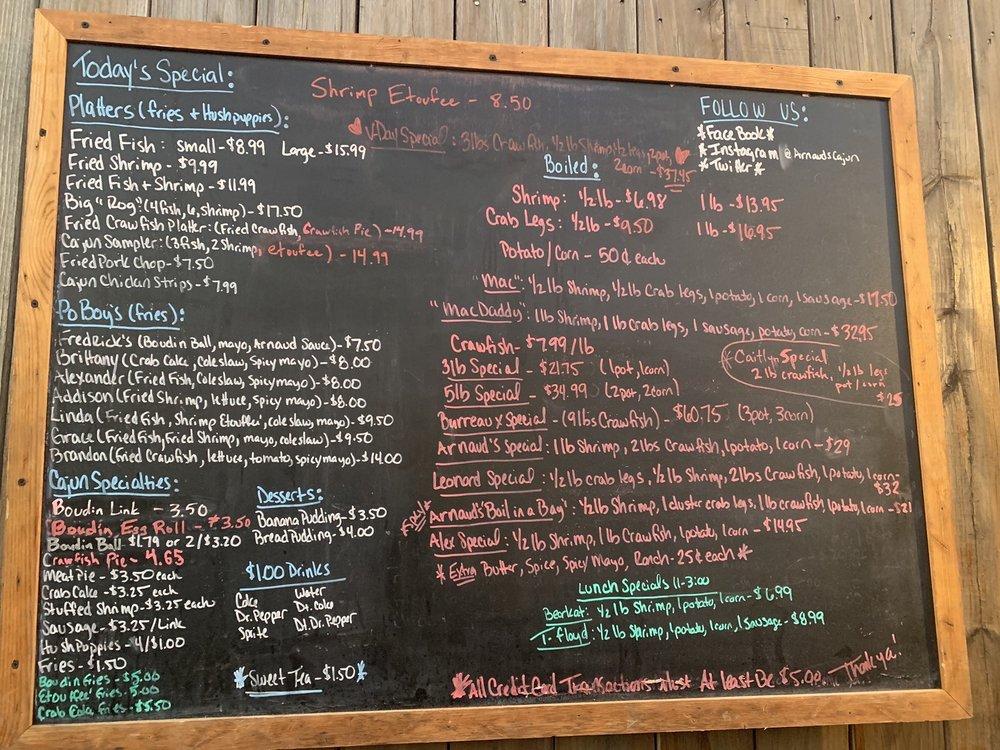 Today's Special:
Shrimp Etoufee - 8.50
Platters (fries + Hushpuppies):
Fried Fish: small-$8.99 Large-$15.99
Fried Shrimp - $9.99
Fried Fish + Shrimp - $11.99
Big "Rog" (4fish, 6, shrimp) - $17.50
Fried Crawfish Platter: (Fried Crawfish, Crawfish Pie) - 14.99
Cajun Sampler: (3fish, 2shrimp, etoufee) - 14.99
Fried Pork Chop - $7.50
Cajun Chicken Strips - $7.99
Po Boy's (fries):
Fredrick's (Boudin Ball, mayo, Arnaud Sauce) - $7.50
Brittany (Crab Cake, coleslaw, Spicy mayo) - $8.00
Alexander (Fried Fish, Coleslaw, Spicy mayo) - $8.00
Addison (Fried Shrimp, lettuce, Spicy mayo) - $8.00
Linda (Fried Fish, Shrimp Etouffee', coleslaw, mayo) - $9.50
Grace (Fried Fish, Fried Shrimp, mayo, coleslaw) - $9.50
Brandon (Fried Crawfish, lettuce, tomato, spicy mayo) - $14.00
Cajun Specialties:
Boudin Link - 3.50
Boudin Egg Roll - $3.50
Boudin Ball $1.79 or 2/$3.20
Crawfish Pie - 4.65
Meat Pie - $3.50 each
Crab Cake - $3.25 each
Stuffed Shrimp - $3.25 each
Sausage - $3.25/Link
Hush Puppies - 4/$1.00
Fries - $1.50
Boudin Fries - $5.00
Etouffee' Fries - 5.00
Crab Cake Fries - $5.50
Desserts:
Banana Pudding - $3.50
Bread Pudding - $4.00
$1.00 Drinks
Coke Water
Dr. Pepper Dt. Coke
Sprite Dt. Dr. Pepper
*Sweet Tea - $1.50*
V-Day Special: 3lbs Crawfish, 1/2 lb Shrimp, 1/2 legs, 2pot,
2corn - $37.45
Boiled:
Shrimp: 1/2 lb - $6.98 1 lb - $13.95
Crab Legs: 1/2 lb - $9.50 1 lb - $16.95
Potato/Corn - 50¢ each
"Mac": 1/2 lb Shrimp, 1/2 lb Crab legs, 1 potato, 1 corn, 1 sausage - $17.50
"MacDaddy": 1lb Shrimp, 1 lb crab legs, 1 sausage, potato, corn - $32.95
Crawfish - $7.99/lb
3lb Special - $21.75 (1pot, 1corn)
5lb Special - $34.99 (2pot, 2corn)
*Caitlyn Special
2 lb crawfish, 1/2 lb legs
pot/corn
$25
Burreaux Special - (9lbs Crawfish) - $60.75 (3pot, 3corn)
Arnaud's Special: 1lb Shrimp, 2lbs Crawfish, 1potato, 1 corn - $29
Leonard Special: 1/2 lb crab legs, 1/2 lb Shrimp, 2lbs Crawfish, 1potato, 1corn -
$32
Arnaud's "Boil in a Bag": 1/2 lb Shrimp, 1 cluster crab legs, 1 lb crawfish, 1potato, 1corn - $21
Alex Special: 1/2 lb Shrimp, 1 lb Crawfish, 1 potato, 1 corn - $14.95
*Extra Butter, Spice, Spicy Mayo, Ranch - 25¢ each*
Lunch Specials 11-3:00
Bearkat: 1/2 lb Shrimp, 1 potato, 1 corn - $6.99
T-Floyd: 1/2 lb Shrimp, 1 potato, 1 corn, 1 sausage - $8.99
*All Credit Card Transactions Must At Least Be $5.00. Thank ya!
FOLLOW US:
*Face Book*
*Instagram @ArnaudsCajun
*Twitter*